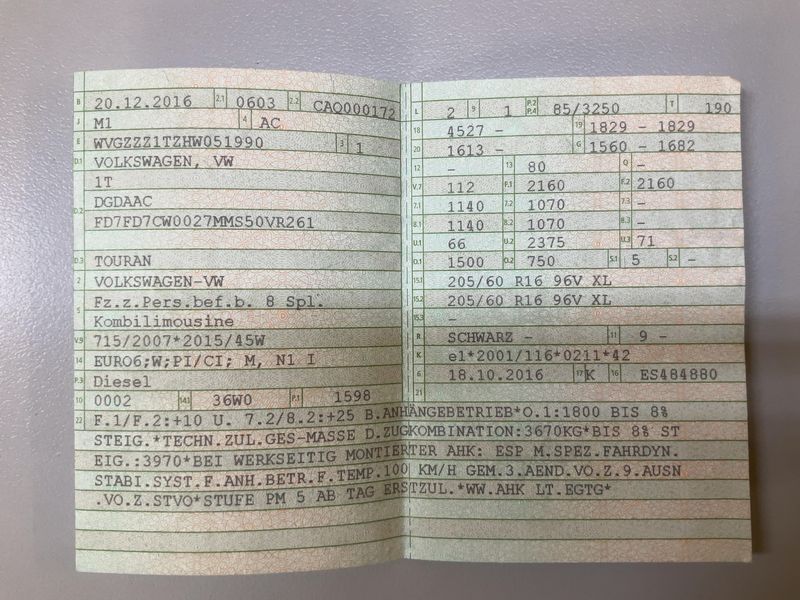 B 20.12.2016 2.1 0603 2.2 CAO000172
J M1 4 AC
E WVGZZZ1TZHW051990 3 1
D.1 VOLKSWAGEN, VW
1T
D.2 DGDAAC
FD7FD7CW0027MMS50VR261
D.3 TOURAN
2 VOLKSWAGEN-VW
5 Fz.z.Pers.bef.b. 8 Spl.
Kombilimousine
V.9 715/2007*2015/45W
14 EURO6;W;PI/CI; M, N1 I
P.3 Diesel
10 0002 14.1 36W0 P.1 1598
L 2 9 1 P.2 P.4 85/3250 T 190
18 4527 - 19 1829 - 1829
20 1613 - G 1560 - 1682
12 - 13 80 Q -
V.7 112 F.1 2160 F.2 2160
7.1 1140 7.2 1070 7.3 -
8.1 1140 8.2 1070 8.3 -
U.1 66 U.2 2375 U.3 71
O.1 1500 O.2 750 S.1 5 S.2 -
15.1 205/60 R16 96V XL
15.2 205/60 R16 96V XL
15.3 -
R SCHWARZ - 11 9 -
K e1*2001/116*0211*42
6 18.10.2016 17 K 16 ES484880
21
22 F.1/F.2:+10 U. 7.2/8.2:+25 B.ANHÄNGEBETRIEB*O.1:1800 BIS 8%
STEIG.*TECHN.ZUL.GES-MASSE D.ZUGKOMBINATION:3670KG*BIS 8% ST
EIG.:3970*BEI WERKSEITIG MONTIERTER AHK: ESP M.SPEZ.FAHRDYN.
STABI.SYST.F.ANH.BETR.F.TEMP.100 KM/H GEM.3.AEND.VO.Z.9.AUSN
.VO.Z.STVO*STUFE PM 5 AB TAG ERSTZUL.*WW.AHK LT.EGTG*